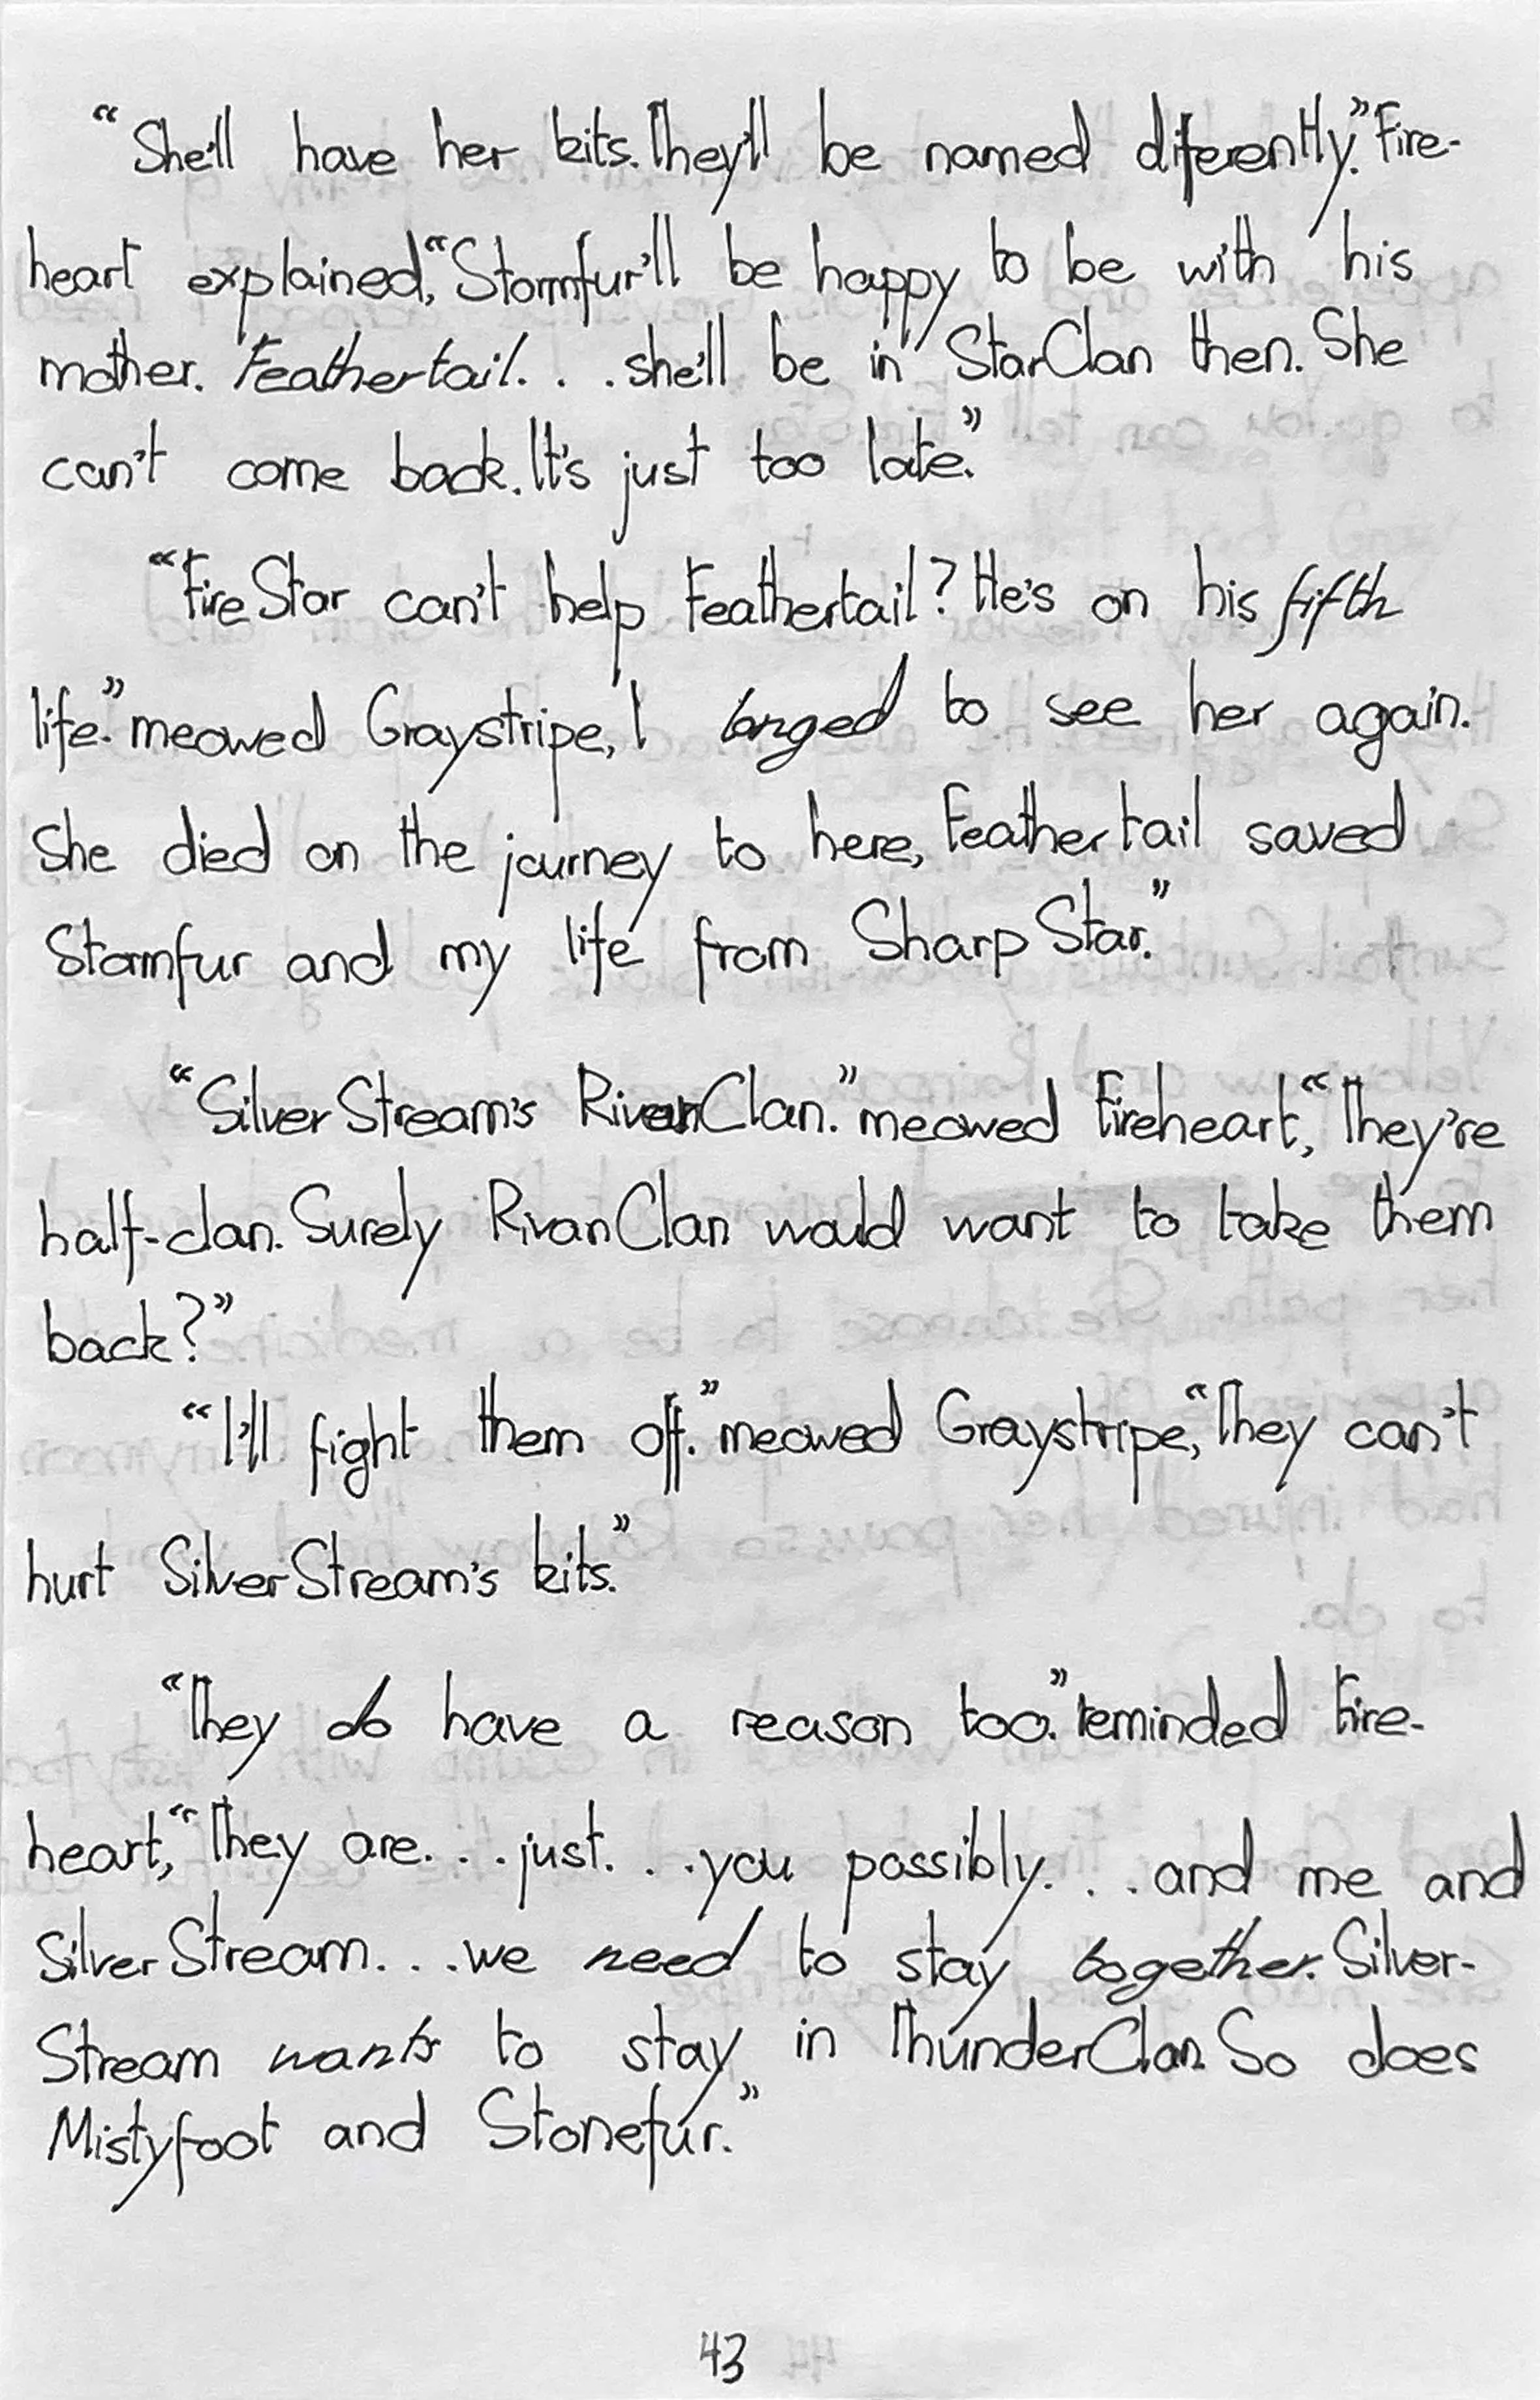 “She'll have her kits. They'll be named diferently.” Fire-
heart explained, “Stormfur'll be happy to be with his
mother. Feathertail. . . she'll be in StarClan then. She
can't come back. It's just too late.”
“FireStar can't help Feathertail? He's on his fifth
life.” meowed Graystripe, I longed to see her again.
She died on the journey to here, Feathertail saved
Stormfur and my life from SharpStar.”
“SilverStream's RivanClan.” meowed Fireheart, “They're
half-clan. Surely RivanClan would want to take them
back?”
“I'll fight them off.” meowed Graystripe, “They can't
hurt SilverStream's kits.”
“They do have a reason too.” reminded Fire-
heart, “They are. . . just. . . you possibly. . . and me and
SilverStream. . . we need to stay together. Silver-
Stream wants to stay in ThunderClan. So does
Mistyfoot and Stonefur.”
43